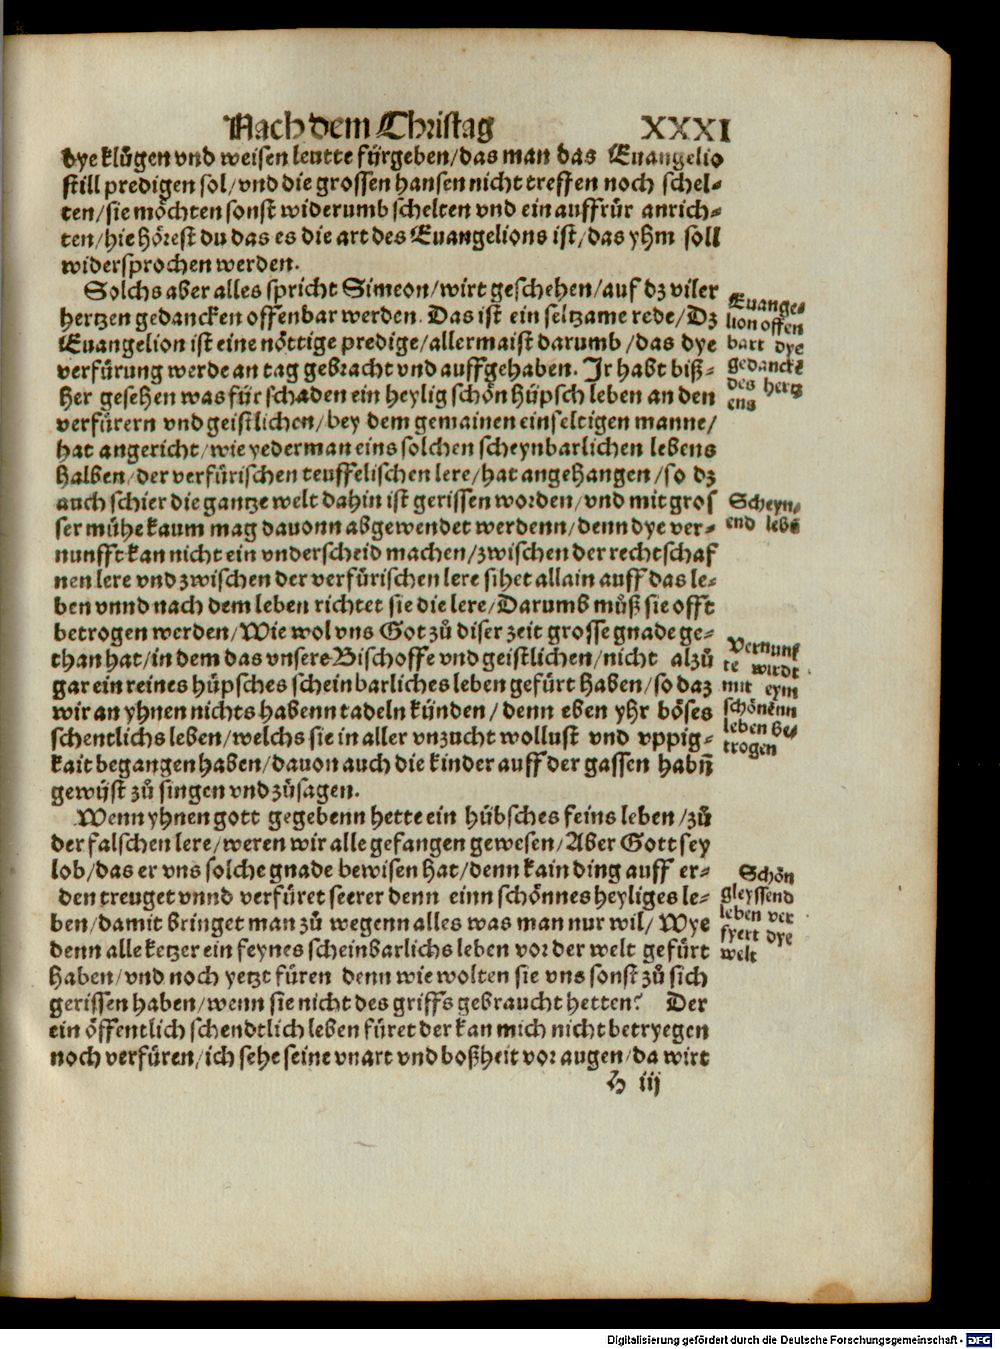 Nach dem Christag XXXI
dye klůgen vnd weisen leutte fürgeben/das man das Euangelio
still predigen sol/vnd die grossen hansen nicht treffen noch schel-
ten/sie möchten sonst widerumb schelten vnd ein auffrůr anrich-
ten/hie hörest du das es die art des Euangelions ist/das yhm soll
widersprochen werden.
Solchs aber alles spricht Simeon/wirt geschehen/auf dz viler
hertzen gedancken offenbar werden. Das ist ein seltzame rede/Dz
Euangelion ist eine nöttige predige/allermaist darumb/das dye
verfürung werde an tag gebracht vnd auffgehaben. Jr habt biß-
her gesehen was für schaden ein heylig schön hüpsch leben an den
verfürern vnd geistlichen/bey dem gemainen einfeltigen manne/
hat angericht/wie yederman eins solchen scheynbarlichen lebens
halben/der verfürischen teuffelischen lere/hat angehangen/so dz
auch schier die gantze welt dahin ist gerissen worden/vnd mit gros
ser mühe kaum mag dauonn abgewendet werdenn/denn dye ver-
nunfft kan nicht ein vnderscheid machen/zwischen der rechtschaf
nen lere vnd zwischen der verfürischen lere sihet allain auff das le-
ben vnnd nach dem leben richtet sie die lere/Darumb můß sie offt
betrogen werden/Wie wol vns Got zů diser zeit grosse gnade ge-
than hat/in dem das vnsere Bischoffe vnd geistlichen/nicht alzů
gar ein reines hüpsches scheinbarliches leben gefürt haben/so daz
wir an yhnen nichts habenn tadeln künden/denn eben yhr böses
schentlichs leben/welchs sie in aller vnzucht wollust vnd vppig-
kait begangen haben/dauon auch die kinder auff der gassen habn̄
gewüst zů singen vnd zůsagen.
Wenn yhnen gott gegebenn hette ein hübsches feins leben/zů
der falschen lere/weren wir alle gefangen gewesen/Aber Gott sey
lob/das er vns solche gnade bewisen hat/denn kain ding auff er-
den treuget vnnd verfüret seerer denn einn schönnes heyliges le-
ben/damit bringet man zů wegenn alles was man nur wil/Wye
denn alle ketzer ein feynes scheinbarlichs leben vor der welt gefürt
haben/vnd noch yetzt füren denn wie wolten sie vns sonst zů sich
gerissen haben/wenn sie nicht des griffs gebraucht hetten? Der
ein öffentlich schendtlich leben füret der kan mich nicht betryegen
noch verfüren/ich sehe seine vnart vnd boßheit vor augen/da wirt
h iij
Euange-
lion offen
bart dye
gedanckē
des hertz
ens
Scheyn-
end lebē
Vernunf
te wirdt
mit eym
schönenn
leben be-
trogen
Schön
gleyssend
leben ver
fyert dye
welt
Digitalisierung gefördert durch die Deutsche Forschungsgemeinschaft - DFG